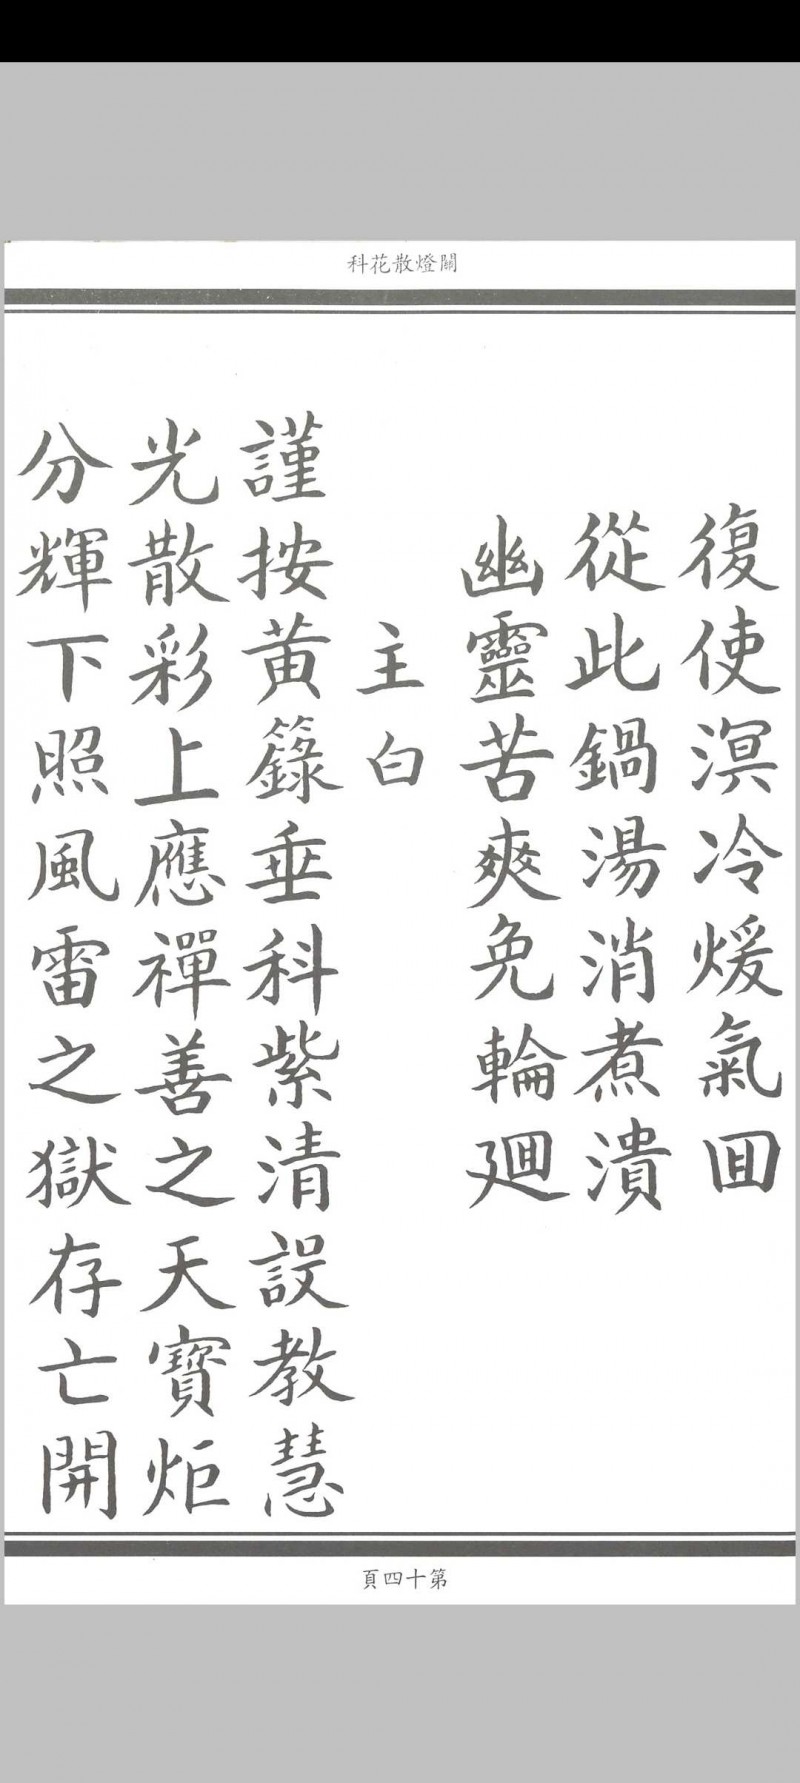 關燈散花科
復使溟冷煖氣囬
從此鍋湯消煮潰
幽靈苦爽免輪廻
主白
謹按黃籙垂科紫清設教慧
光散彩上應禪善之天寶炬
分輝下照風雷之獄存亡開
第十四頁